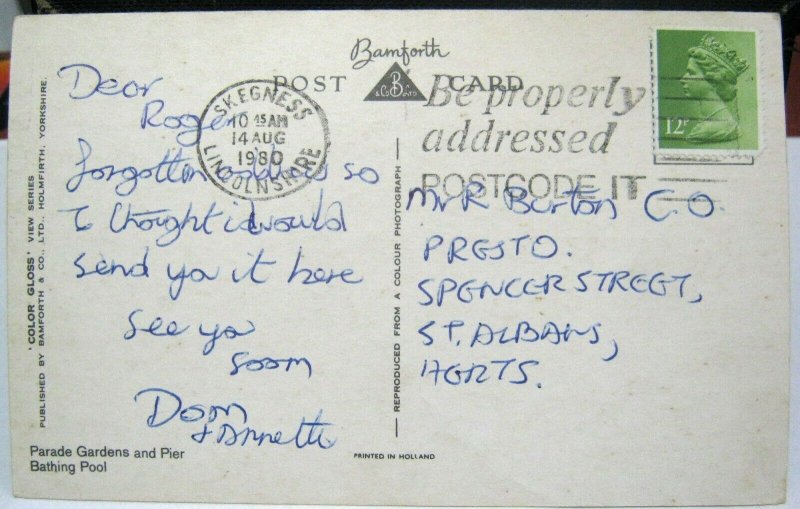 Bamforth
POST CARD
B
& Co LTD
SKEGNESS
10 45 AM
14 AUG
1980
LINCOLNSHIRE
Be properly
addressed
POSTCODE IT
12P
Dear
Roger
forgotten so
I thought i would
send you it here
see ya
soom
Dom
& Annette
Mr R Burton C.O.
PRESTO.
SPENCER STREET,
ST. ALBANS,
HERTS.
'COLOR GLOSS' VIEW SERIES
PUBLISHED BY BAMFORTH & CO., LTD., HOLMFIRTH, YORKSHIRE.
REPRODUCED FROM A COLOUR PHOTOGRAPH
Parade Gardens and Pier
Bathing Pool
PRINTED IN HOLLAND